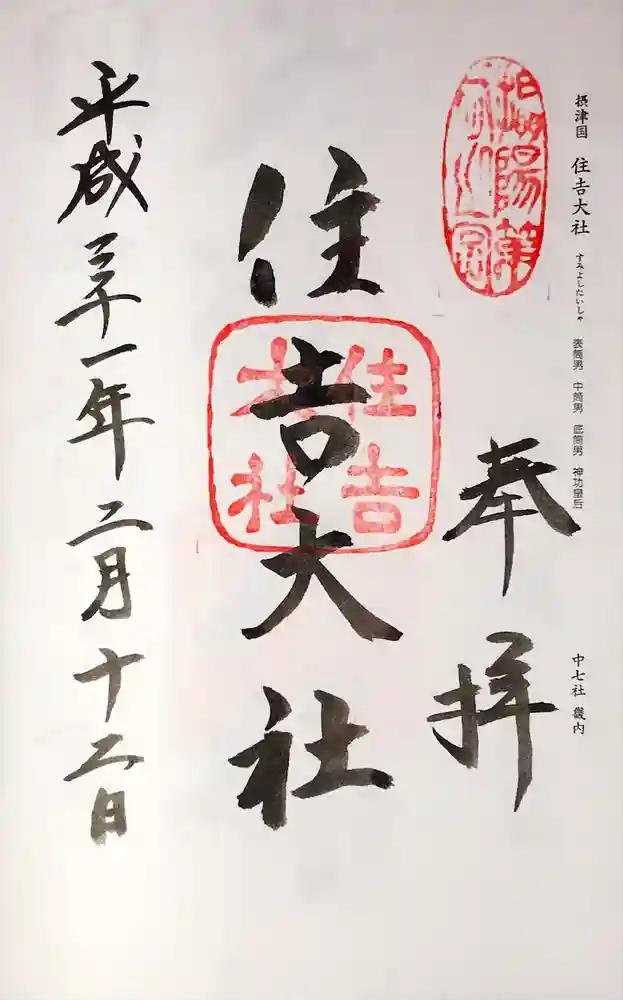 摂津国 住吉大社 すみよしたいしゃ 表筒男 中筒男 底筒男 神功皇后
中七社 畿内
奉拝
住吉大社
住吉
大社
平成三十一年二月十二日